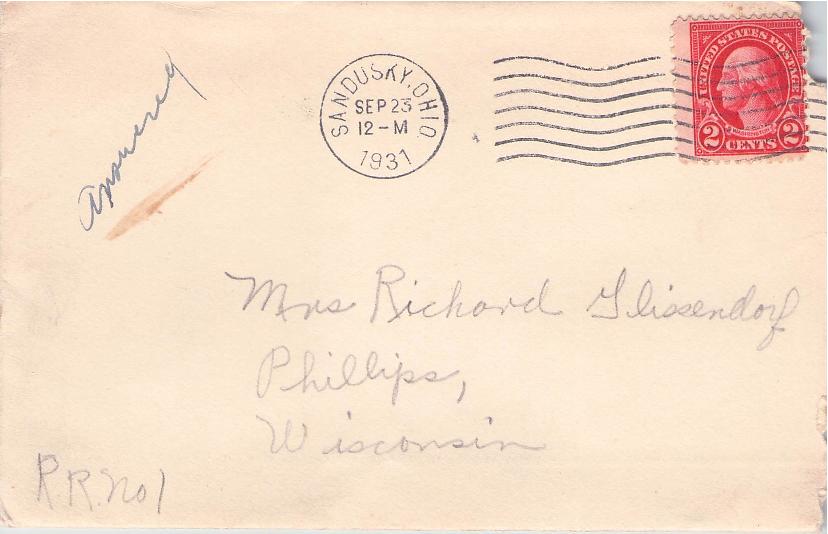 Answered
SANDUSKY, OHIO
SEP 23
12-M
1931
UNITED STATES POSTAGE
WASHINGTON
2 CENTS 2
Mrs Richard Glissendorf
Phillips,
Wisconsin
R.R. No 1